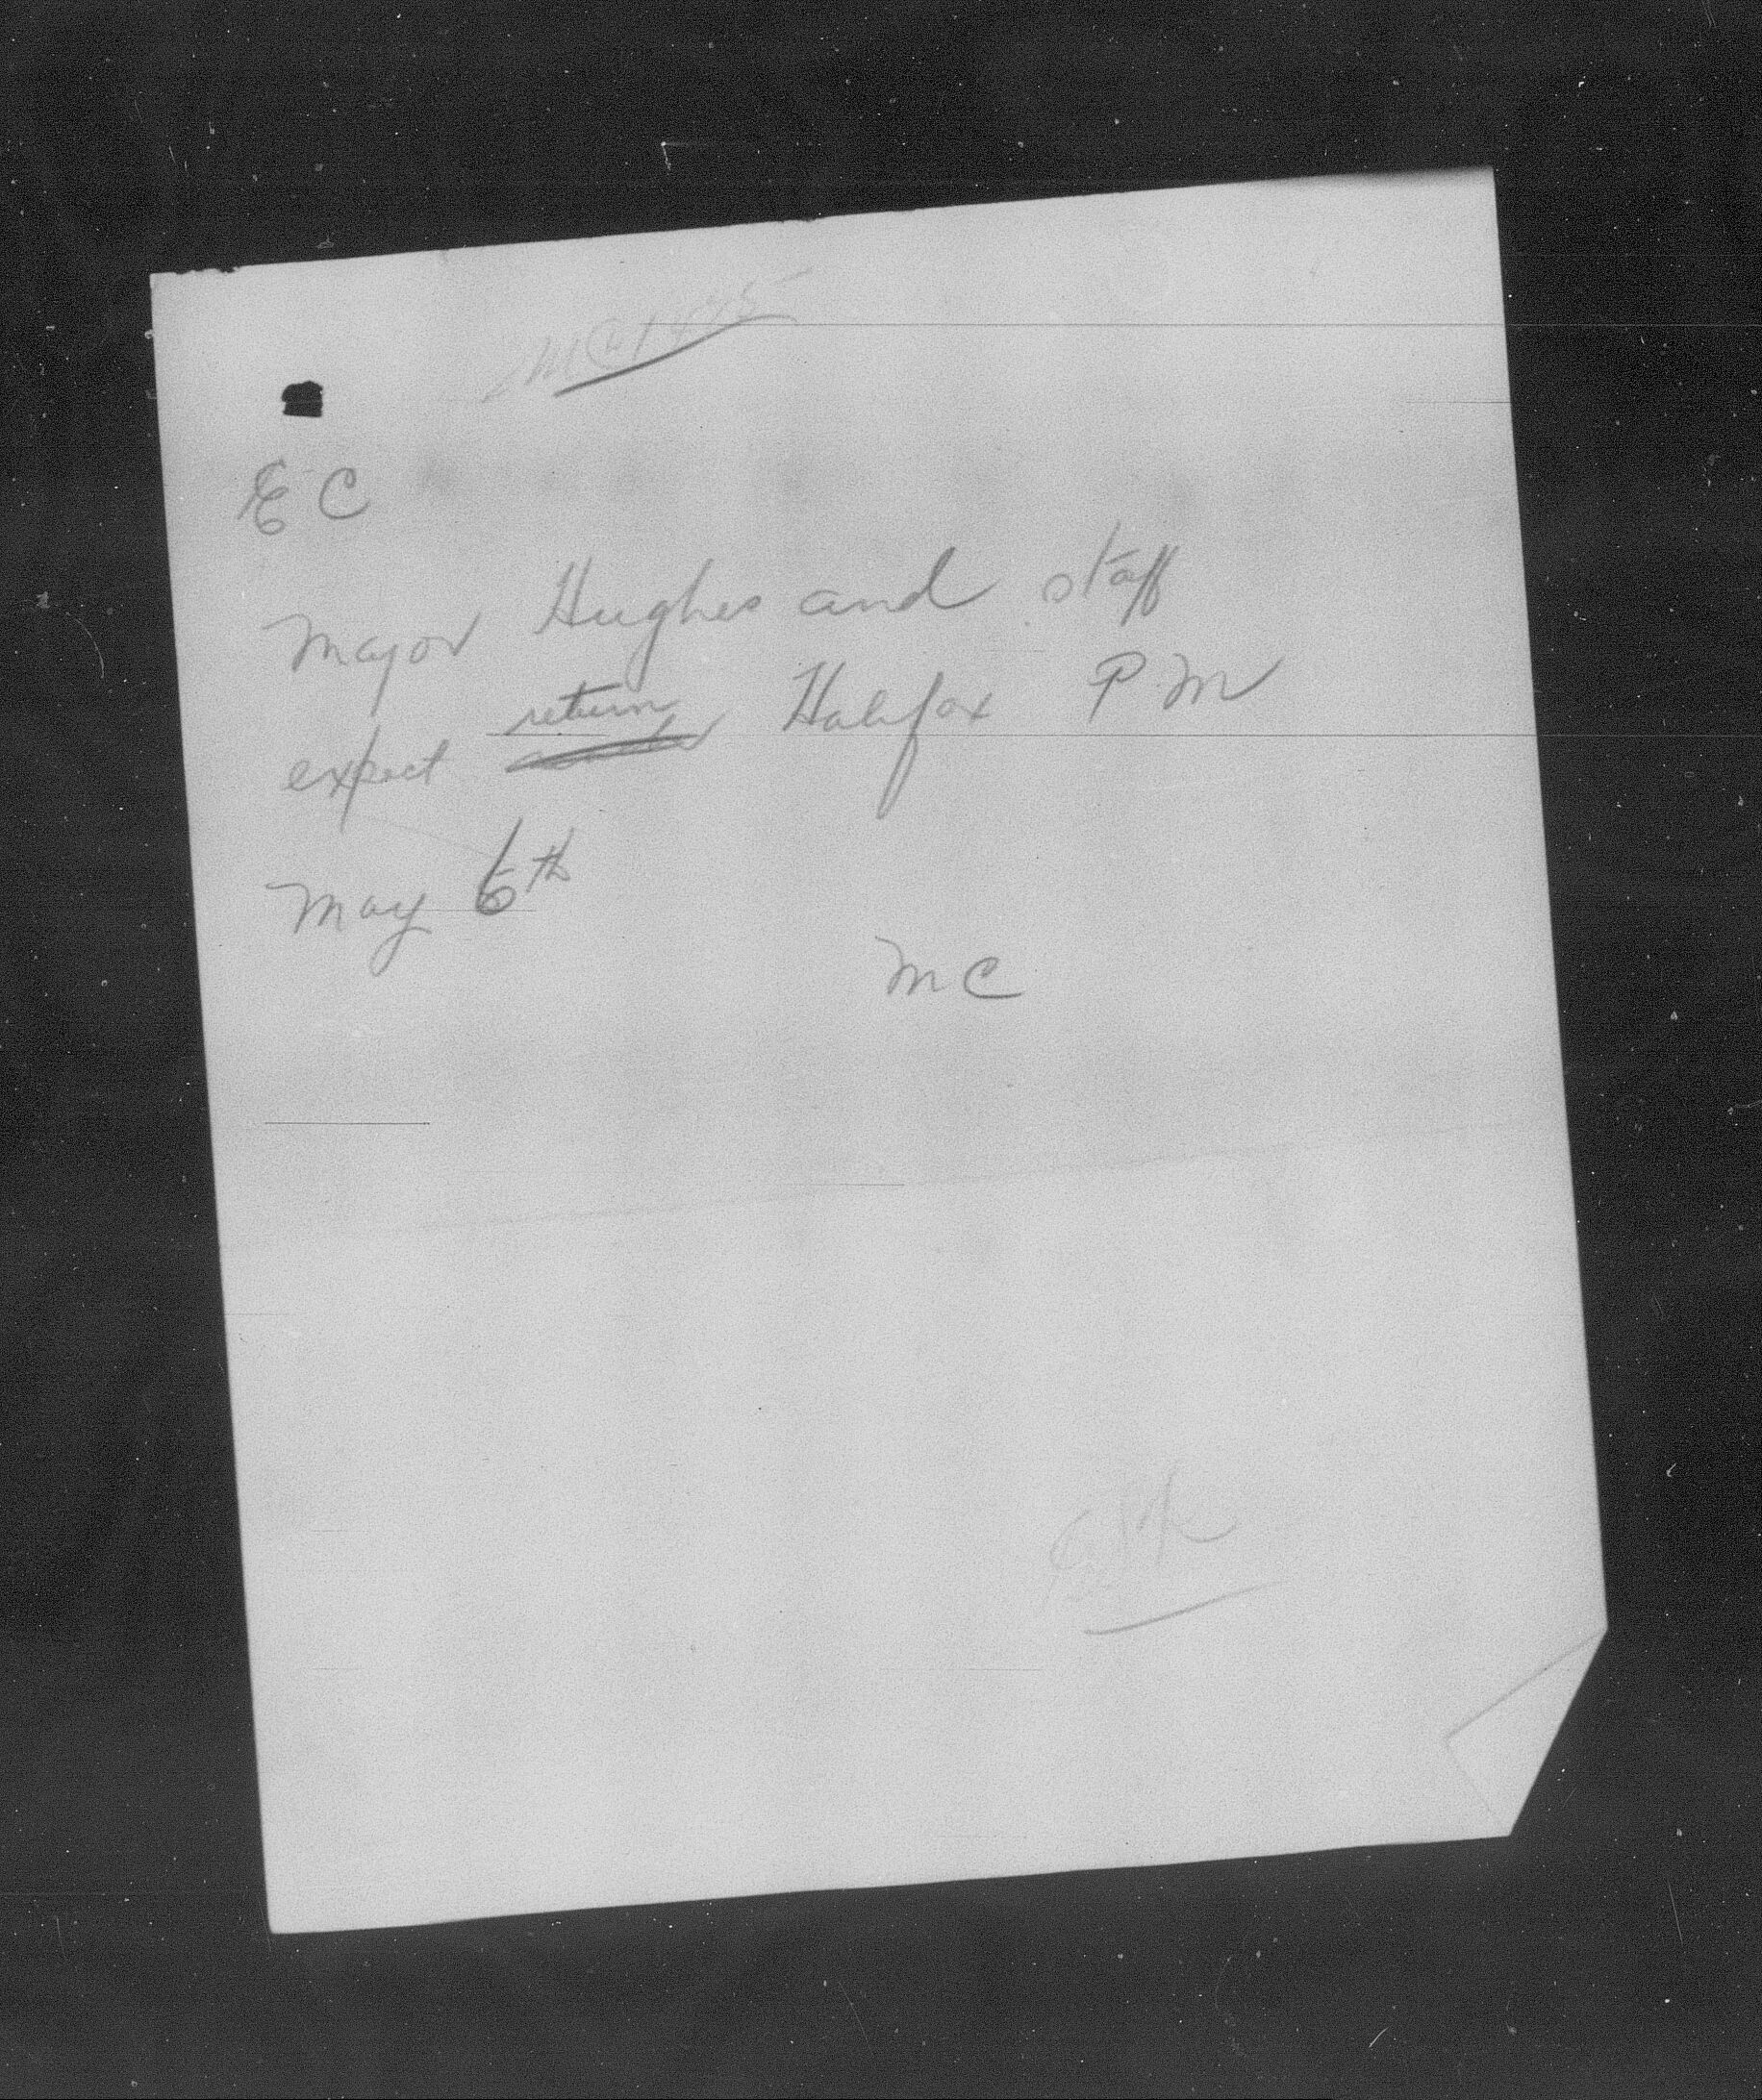 E C
Major Hughes and staff
expect return Halifax P M
May 6th
M C